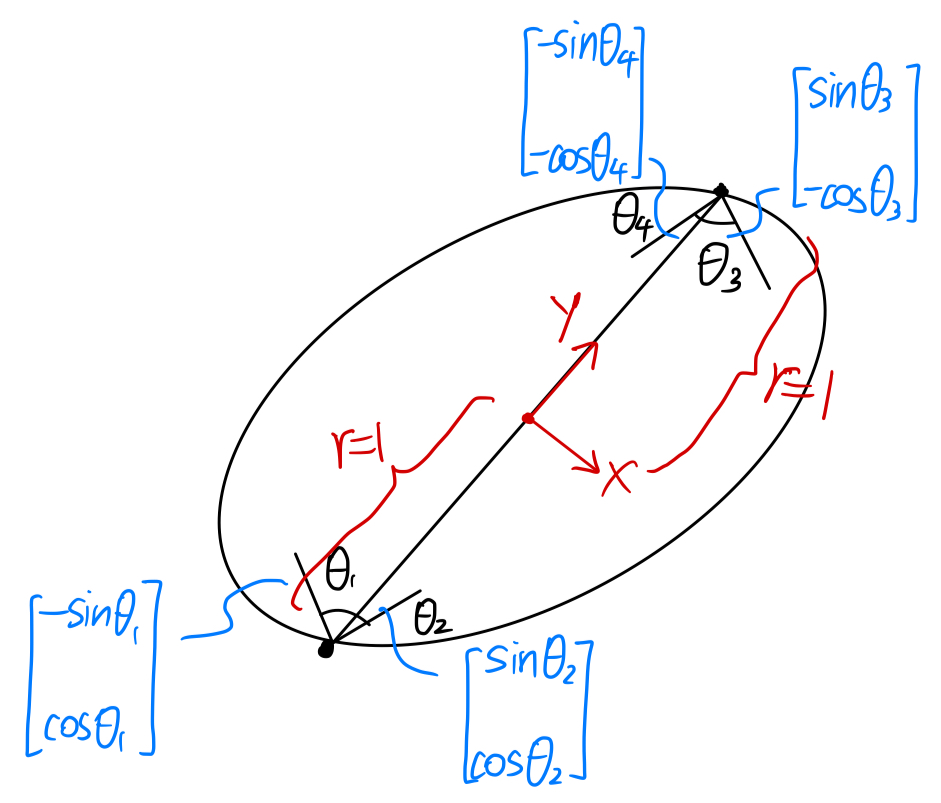 -sinθ4
-cosθ4
sinθ3
-cosθ3
θ4
θ3
Y
r=1
r=1
X
θ1
θ2
-sinθ1
cosθ1
sinθ2
cosθ2